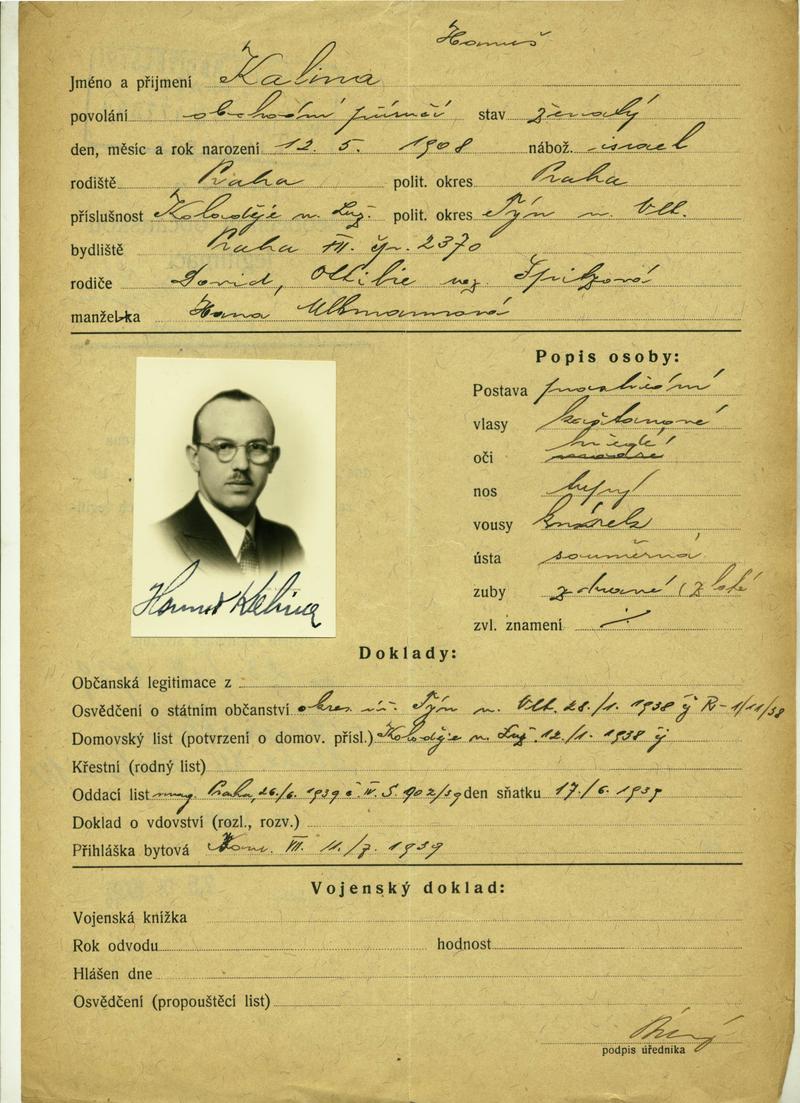 Hanuš
Jméno a přijmení Kalina
povolání obchodní příručí stav ženatý
den, měsíc a rok narození 12. 5. 1908 nábož. israel
rodiště Praha polit. okres Praha
příslušnost Koloděje n. Luž. polit. okres Týn n. Vlt.
bydliště Praha VII. čp. 2370
rodiče David, Otilie roz. Spitzová
manželka Hana Ullmannová
Popis osoby:
Postava prostřední
vlasy kaštanové
hnědé
oči modré
nos
vousy knírek
ústa souměrná
zuby zdravé (zlaté
zvl. znamení
Hanuš Kalina
Doklady:
Občanská legitimace z
Osvědčení o státním občanství okres. úř. Týn n. Vlt. 28./1. 1938 čj R-1/11/38
Domovský list (potvrzení o domov. přísl.) Koloděje n. Luž. 12./1. 1938 čj
Křestní (rodný list)
Oddací list mag. Praha, 26./6. 1939 č. IV. S. 902/39 den sňatku 17./6. 1939
Doklad o vdovství (rozl., rozv.)
Přihláška bytová Kom. VII. 11./7. 1939
Vojenský doklad:
Vojenská knížka
Rok odvodu hodnost
Hlášen dne
Osvědčení (propouštěcí list)
podpis úředníka